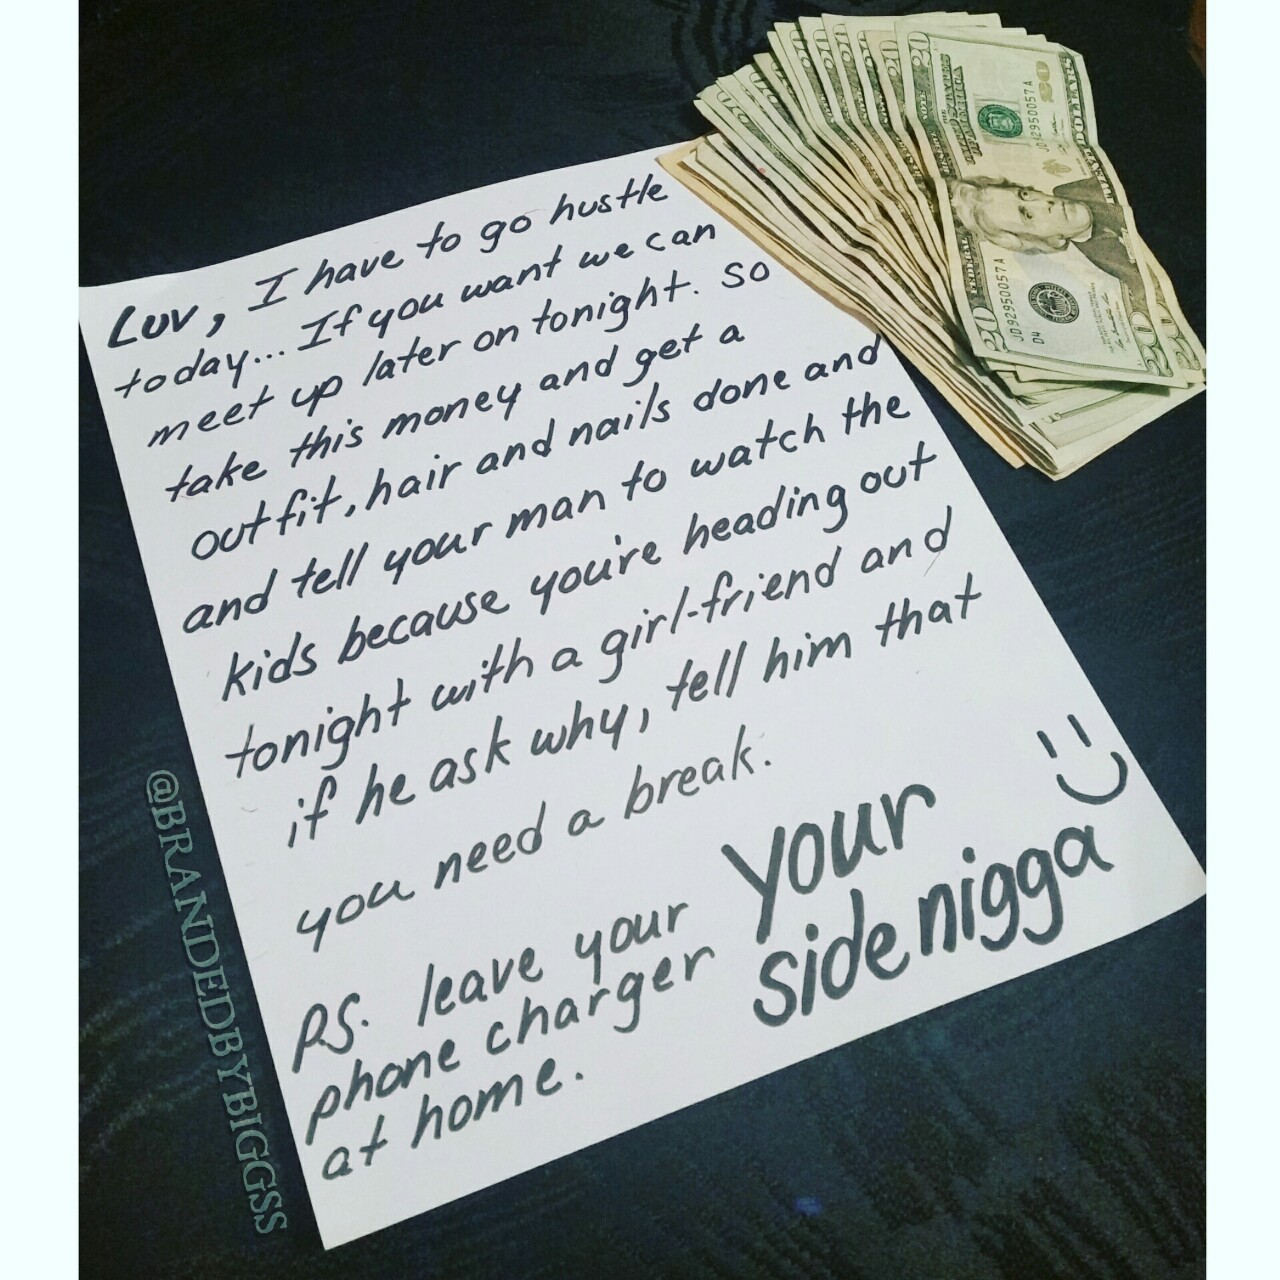 Luv, I have to go hustle
today... If you want we can
meet up later on tonight. So
take this money and get a
outfit, hair and nails done and
and tell your man to watch the
kids because you're heading out
tonight with a girl-friend and
if he ask why, tell him that
you need a break.
P.S. leave your
phone charger
at home.
Your
side nigga
@BRANDEDBYBIGGSS
20
JD92950057A
20
TWENTY DOLLARS
JD92950057A
D4
20
20